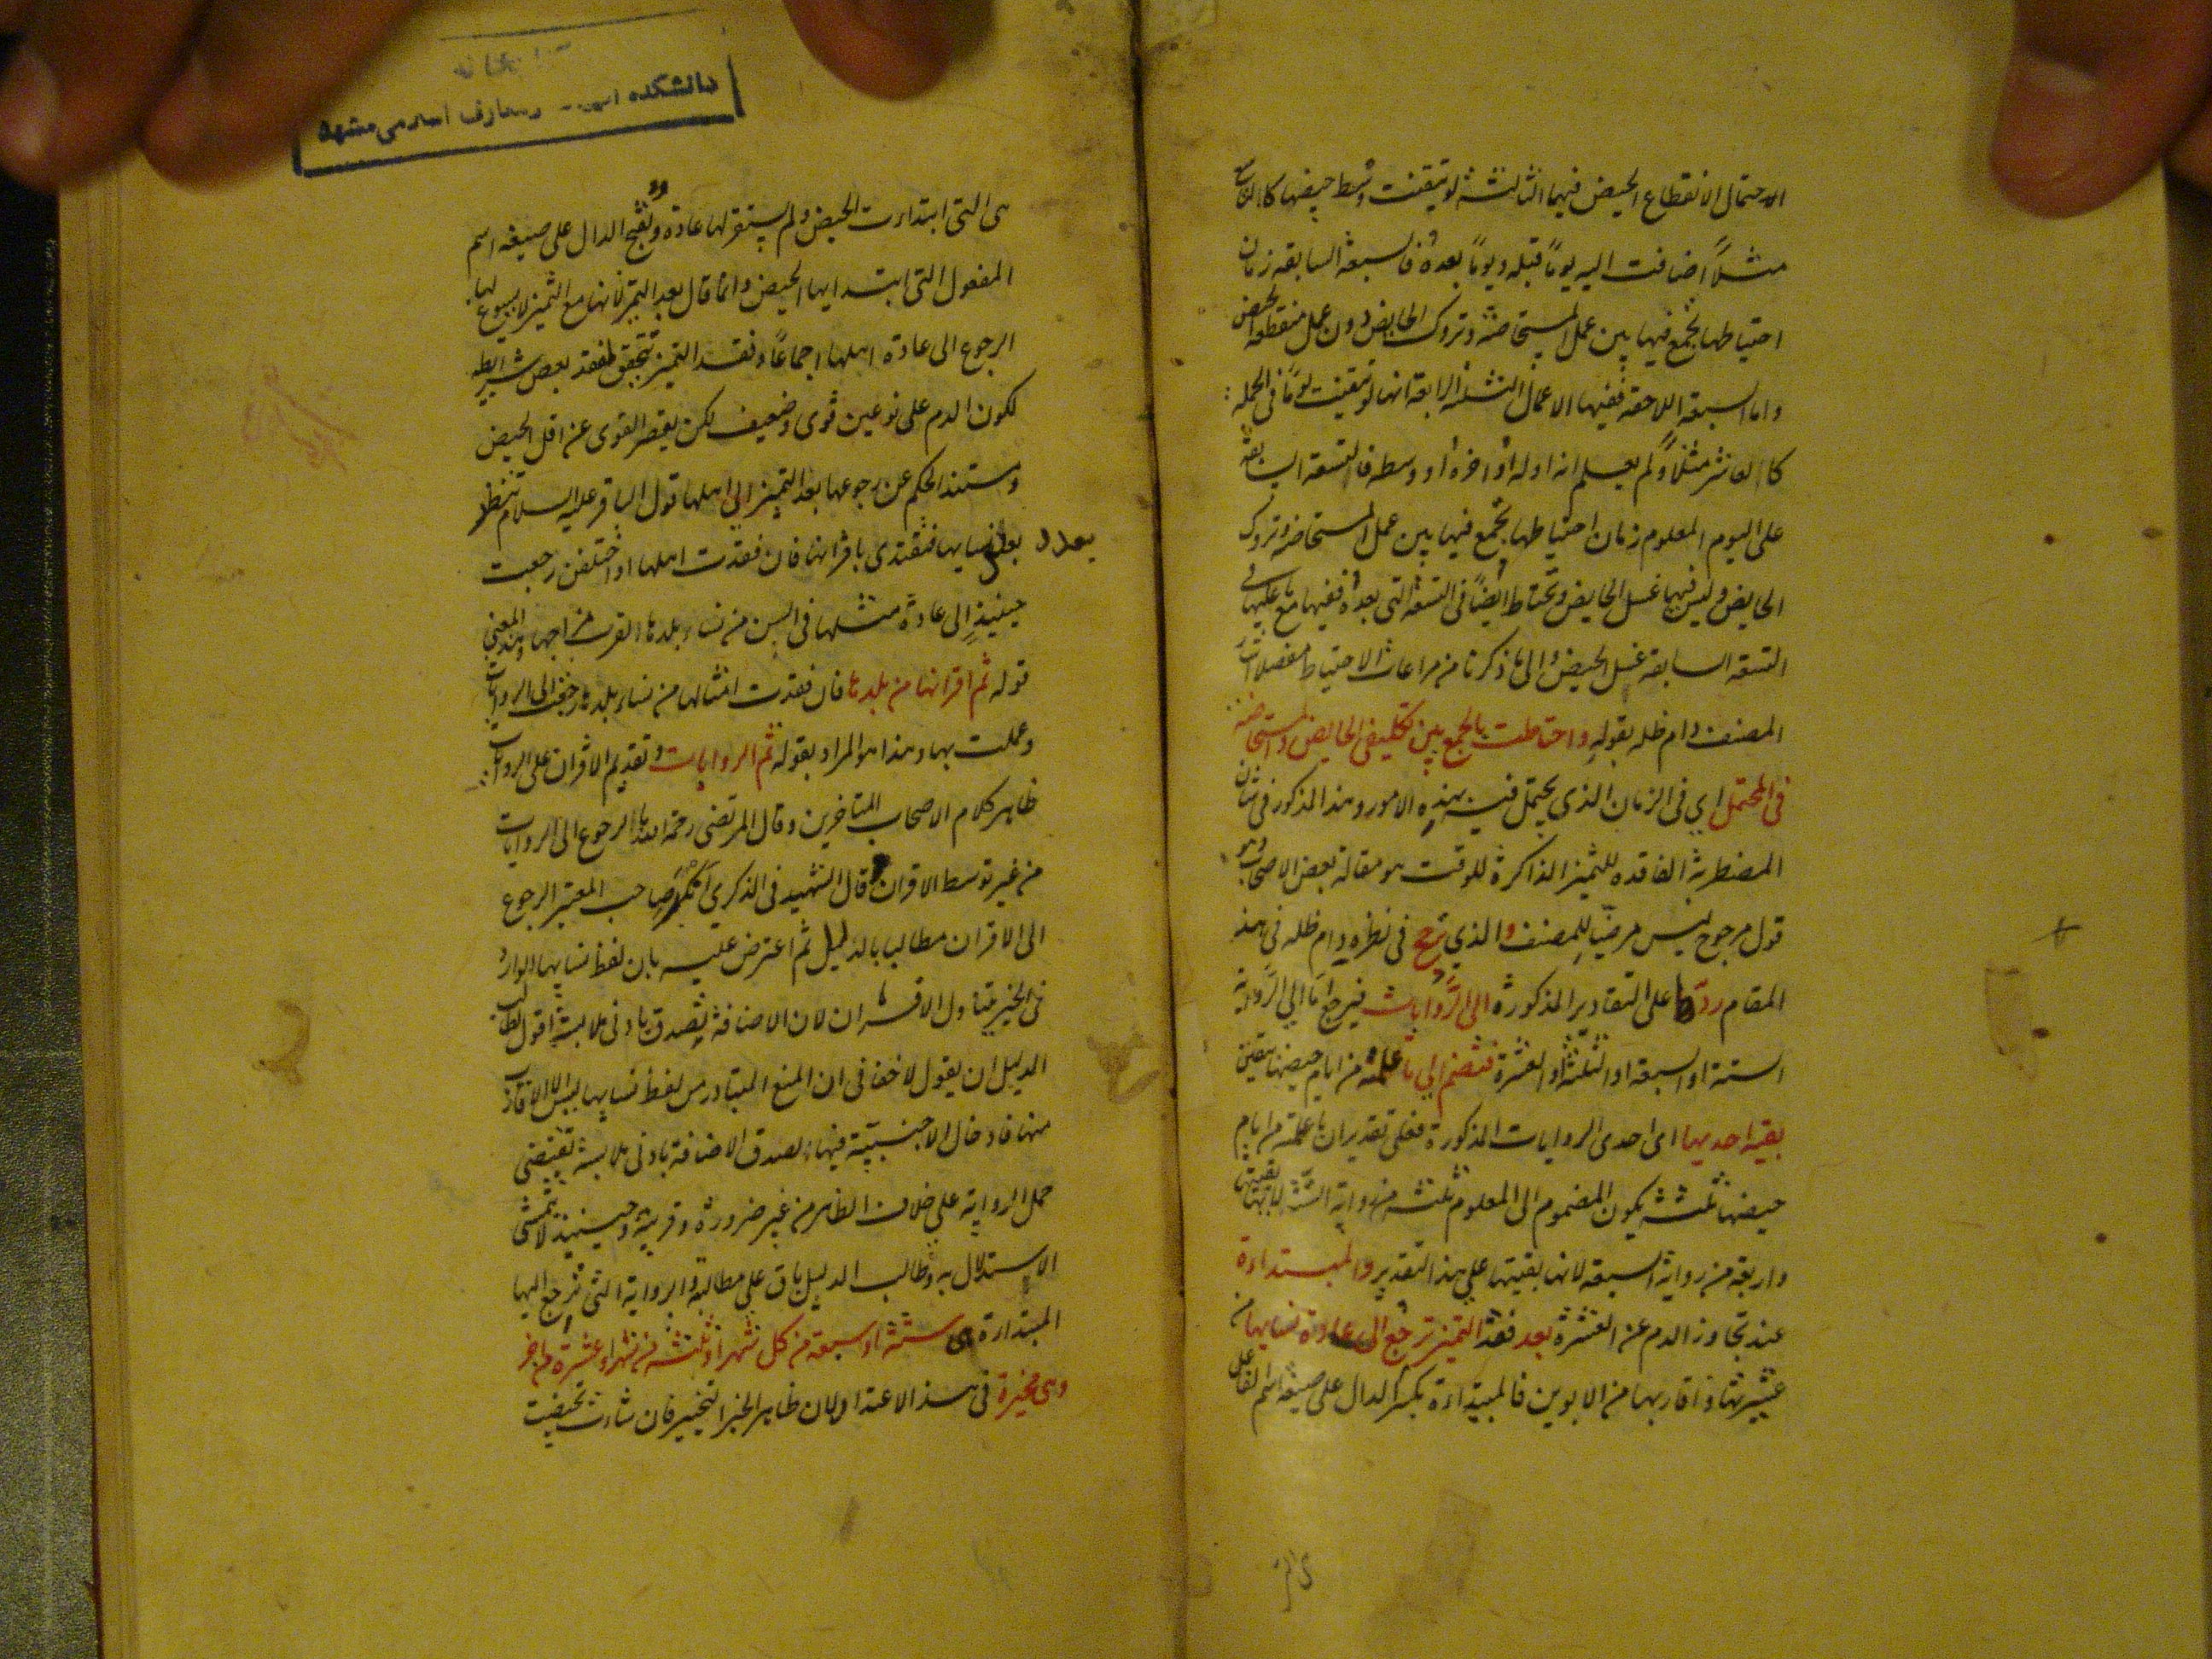 الاحتمال الانقطاع الحيض فيها الثالثة لو تيقنت وسط حيضها كالتاسع
مثلاً اضافت اليه يوماً قبله ويوماً بعده فالسبعة السابقة زمان
احتياطها تجمع فيها بين عمل المستحاضة وتروك الحايض دون عمل منقطعة الحيض
واما السبعة اللاحقة ففيها الاعمال الثلثة الرابعة انها لو تيقنت يوماً في الجملة
كالعاشر مثلاً ولم يعلم انه اوله او آخره او وسطه فالتسعة السابقة
على اليوم المعلوم زمان احتياطها تجمع فيها بين عمل المستحاضة وتروك
الحايض وليس فيها غسل الحايض وتحتاط ايضاً في التسعة التي بعده ففيها مع ما عليها في
التسعة السابقة غسل الحيض والى ما ذكرنا من مراعات الاحتياط مفصلا اشار
المصنف دام ظله بقوله واحتاطت بالجمع بين تكليفي الحايض والمستحاضة
في المحتمل اي في الزمان الذي يحتمل فيه بهذه الامور وهذا المذكور في شان
المضطربة الفاقدة للتميز الذاكرة للوقت هو مقالة بعض الاصحاب وهو
قول مرجوح ليس مرضياً للمصنف والذي ترجح في نظره دام ظله في هذا
المقام ردها على التقادير المذكورة الى الروايات فيرجع اما الى الرواية
الستة او السبعة او الثلثة او العشرة فتضم الى ما علمته من ايام حيضها بيقين
بقية احديها اى احدى الروايات المذكورة فعلى تقدير ان ما علمته من ايام
حيضها ثلثة يكون المضموم الى المعلوم ثلثة من رواية الستة لانها بقيتها
واربعة من رواية السبعة لانها بقيتها على هذا التقدير والمبتداءة
عند تجاوز الدم عن العشرة بعد فقد التميز ترجع الى عادة نسايها من
عشيرتها واقاربها من الابوين فالمبتداءة بكسر الدال على صيغة اسم الفاعل
دانشكده ... ومعارف اسلامى مشهد
هى التى ابتداءت الحيض ولم يستقر لها عادة وبفتح الدال على صيغة اسم
المفعول التى ابتدء ايها الحيض وانما قال بعد التميز لانها مع التميز لا يسوغ لها
الرجوع الى عادة اهلها اجماعاً وفقد التميز يتحقق بفقد بعض شرايطه
لكون الدم على نوعين قوى وضعيف لكن يقصر القوى عن اقل الحيض
ومستند الحكم عن رجوعها بعد التميز الى اهلها قول الباقر عليه السلام تنظر
بعض نسايها فتقتدى باقرانها فان فقدت اهلها او اختلفن رجعت
حينيذ الى عادة مثلها في السن من نساء بلدها القرب مزاجها وهذا معنى
قوله ثم اقرانها من بلدها فان فقدت امثالها من نساء بلدها رجعت الى الروايات
وعملت بها وهذا هو المراد بقوله ثم الروايات وتقديم الاقران على الروايات
ظاهر كلام الاصحاب المتاخرين وقال المرتضى رحمه الله الرجوع الى الروايات
من غير توسط الاقران وقال الشهيد فى الذكرى انكر صاحب المعتبر الرجوع
الى الاقران مطالبا بالدليل ثم اعترض عليه بان لفظ نسايها الوارد
فى الخبر يتناول الاقران لان الاضافة يصدق بادنى ملابسة اقول لطالب
الدليل ان يقول لا خفا فى ان المتبادر من لفظ نسايها ليس الا الاقارب
منها فادخال الاجنبيته فيها لصدق الاضافة بادنى ملابسة تقتضى
حمل الرواية على خلاف الظاهر من غير ضرورة وقرينة وحينيذ لا يتمشى
الاستدلال به وطالب الدليل باق على مطالبته والرواية التى ترجع اليها
المبتداءة هى ستة او سبعة من كل شهر او ثلثة من شهر وعشرة من آخر
وهى مخيرة فى هذا الاعتداد لان ظاهر الخبر التخيير فان شاءت تحيضت